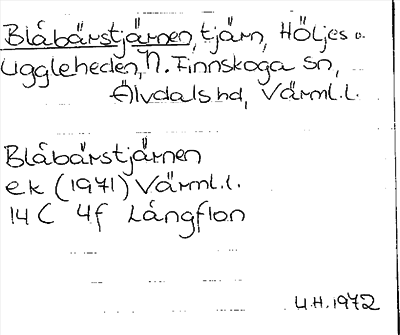 Blåbärstjärnen, tjärn, Höljes o.
Uggleheden, N. Finnskoga sn,
Älvdals hd, Värml.l.
Blåbärstjärnen
ek (1971) Värml.l.
14 C 4f Långflon
U.H. 1972